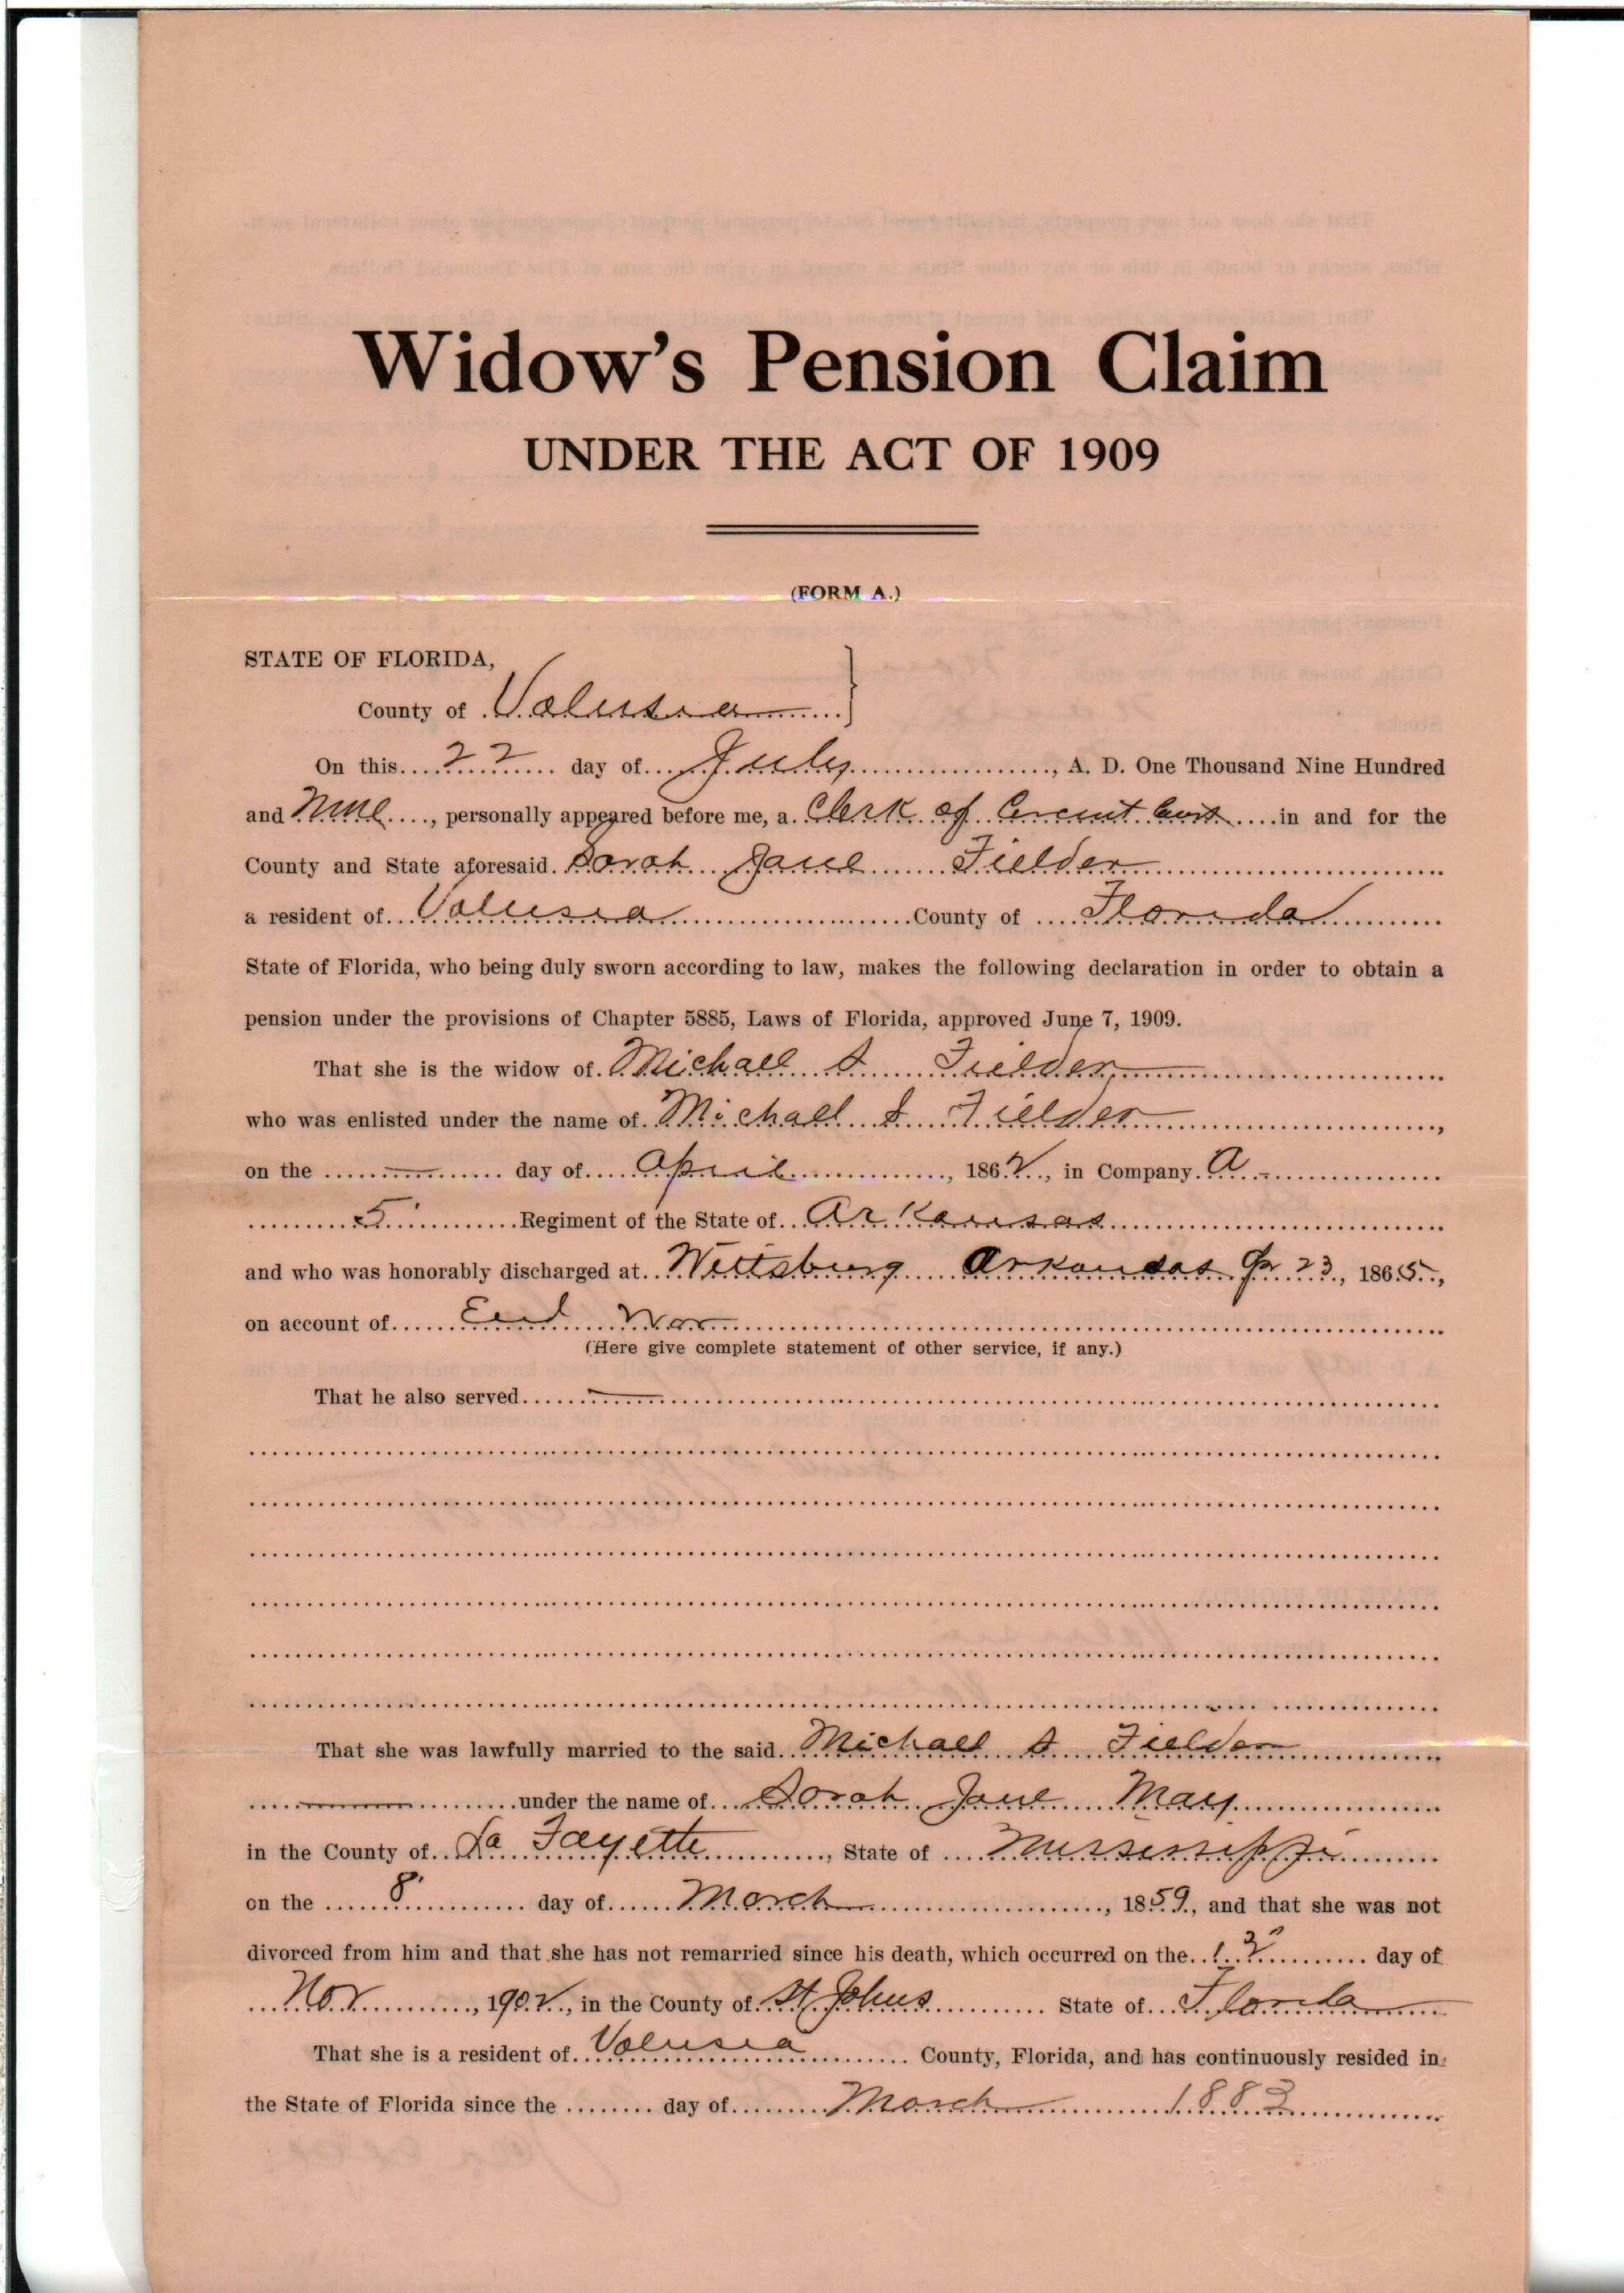 Widow's Pension Claim
UNDER THE ACT OF 1909
(FORM A.)
STATE OF FLORIDA,
County of Volusia
On this 22 day of July, A. D. One Thousand Nine Hundred
and Nine, personally appeared before me, a Clerk of Circuit Court in and for the
County and State aforesaid Sarah Jane Fielder
a resident of Volusia County of Florida
State of Florida, who being duly sworn according to law, makes the following declaration in order to obtain a
pension under the provisions of Chapter 5885, Laws of Florida, approved June 7, 1909.
That she is the widow of Michael S Fielder
who was enlisted under the name of Michael S Fielder,
on the — day of April, 1862, in Company A
5 Regiment of the State of Arkansas
and who was honorably discharged at Wittsburg Arkansas 23, 1865,
on account of End War
(Here give complete statement of other service, if any.)
That he also served —
That she was lawfully married to the said Michael S Fielder
— under the name of Sarah Jane May
in the County of La Fayette, State of Mississippi
on the 8 day of March, 1859, and that she was not
divorced from him and that she has not remarried since his death, which occurred on the day of
Nov, 1902, in the County of St Johns State of Florida
That she is a resident of Volusia County, Florida, and has continuously resided in
the State of Florida since the day of March 1883